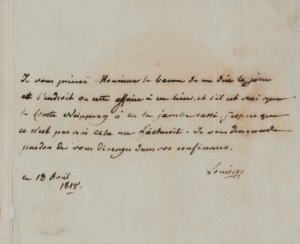 Je vous prierai Monsieur le baron de me dire le jour
et l'endroit ou cette affaire à eu lieu, et s'il est vrai que
le Comte Neipperg à eu la jambe cassé j'espere que
ce n'est pas vrai cela me l'. Je vous demande
pardon de vous deranger dans vos conferences.
Louise
ce 18 Avril
1815.